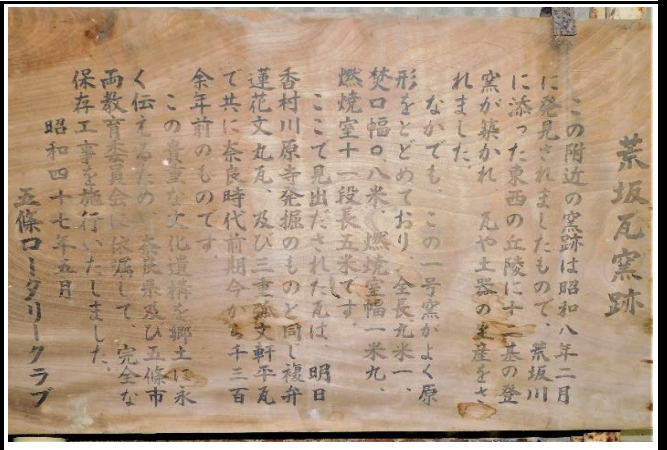 荒坂瓦窯跡
この附近の窯跡は昭和八年二月
に発見されましたもので、荒坂川
に添った東西の丘陵に十二基の登
窯が築かれ 瓦や土器の生産をさ
れました。
なかでも、この一号窯がよく原
形をとどめており、全長九米一、
焚口幅〇、八米、燃焼室幅一米九、
燃焼室十一段長五米です。
ここで見出だされた瓦は 明日
香村川原寺発掘のものと同じ複弁
蓮花文丸瓦、及び三重弧文軒平瓦
で共に奈良時代前期今から千三百
余年前のものです。
この貴重な文化遺構を郷土に永
く伝えるため 奈良県及び五條市
両教育委員会に依嘱して、完全な
保存工事を施行いたしました。
昭和四十七年五月
五條ロータリークラブ